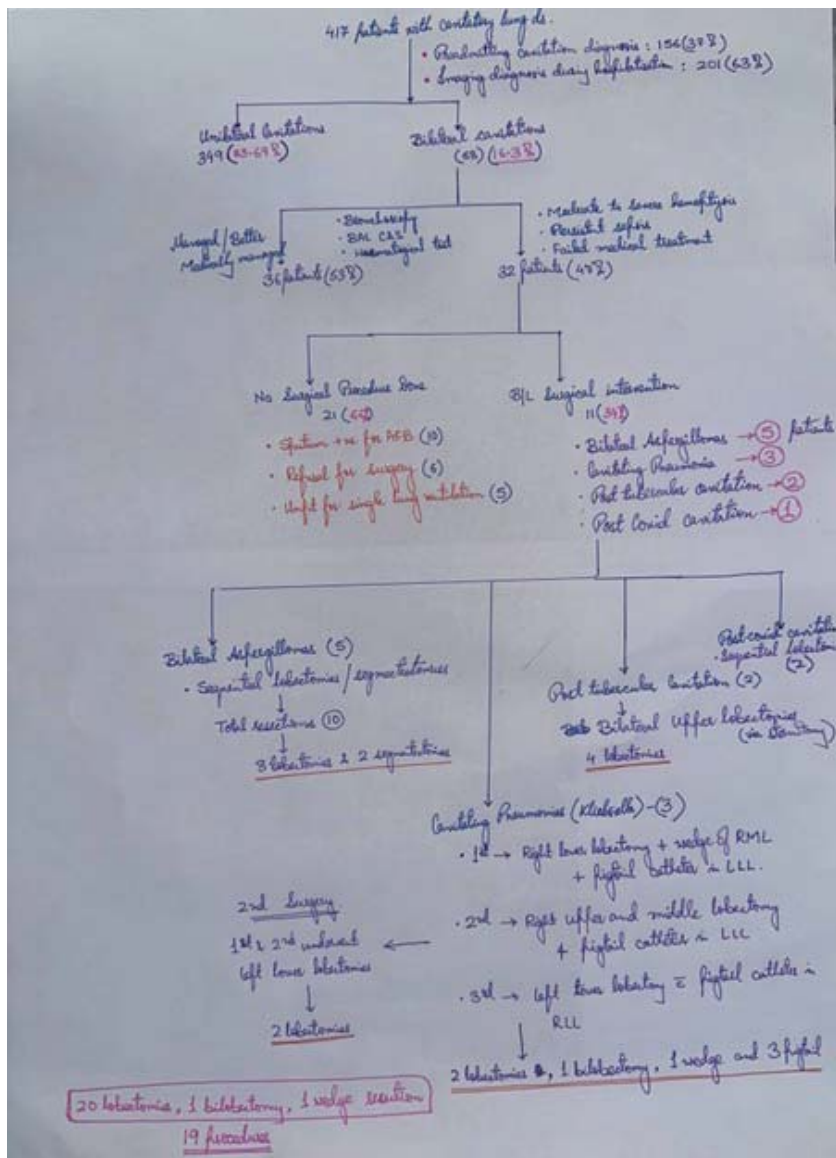 417 patients with cavitatory lung ds.
• Preadmitting cavitation diagnosis : 156 (37%)
• Imaging diagnosis during hospitilisation : 201 (63%)
Unilateral Cavitations
349 (83.69%)
Bilateral cavitations
(68) (16.3%)
Managed / Better
Medically managed
36 patients (53%)
• Bronchoscopy
• BAL C&S
• Haematogical test
• Moderate to severe hemoptysis
• Persistent sepsis
• Failed medical treatment
32 patients (47%)
No Surgical Procedure Done
21 (66%)
• Sputum +ve for AFB (10)
• Refusal for surgery (6)
• Unfit for single lung ventilation (5)
B/L Surgical intervention
11 (34%)
• Bilateral Aspergillomas → 5 patients
• Cavitating Pneumonia → 3
• Post tubercular cavitation → 2
• Post Covid cavitation → 1
Bilateral Aspergillomas (5)
• Sequential lobectomies / segmentectomies
Total resections 10
8 lobectomies & 2 segmentectomies
Post tubercular cavitation (2)
Bilateral Upper lobectomies
4 lobectomies
Post covid cavitation
• Sequential lobectomy
(2)
Cavitating Pneumonias (Klebsella) - (3)
• 1st → Right lower lobectomy + wedge of RML
+ pigtail catheter in LLL.
• 2nd → Right upper and middle lobectomy
+ pigtail catheter in LLL
• 3rd → left lower lobectomy c̄ pigtail catheter in
RLL
2 lobectomies, 1 bilobectomy, 1 wedge and 3 pigtail
2nd Surgery
1st & 2nd underwent
left lower lobectomies
2 lobectomies
20 lobectomies, 1 bilobectomy, 1 wedge resection
19 procedures